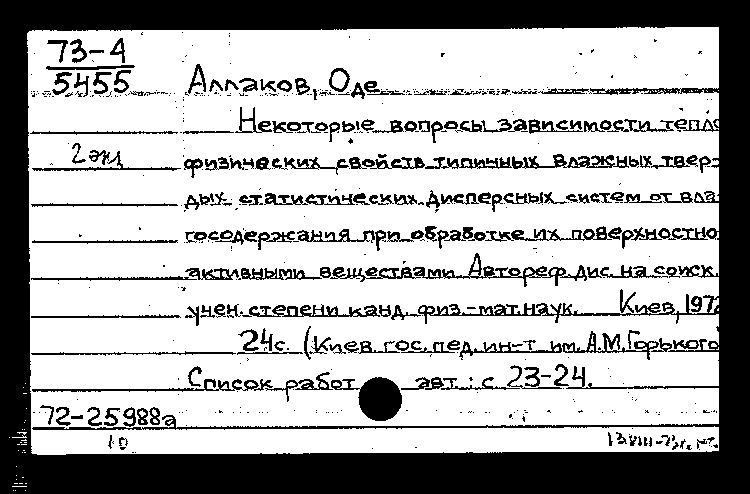 73-4
5455
Аллаков, Оде
Некоторые вопросы зависимости тепло
2 экз
физических свойств типичных влажных твер-
дых статистических дисперсных систем от вла
госодержания при обработке их поверхностно
активными веществами Автореф. дис. на соиск.
учен. степени канд. физ.-мат. наук. Киев, 1972
24с. (Киев. гос. пед. ин-т им. А.М. Горького
Список работ авт.: с 23-24.
72-25988а
10